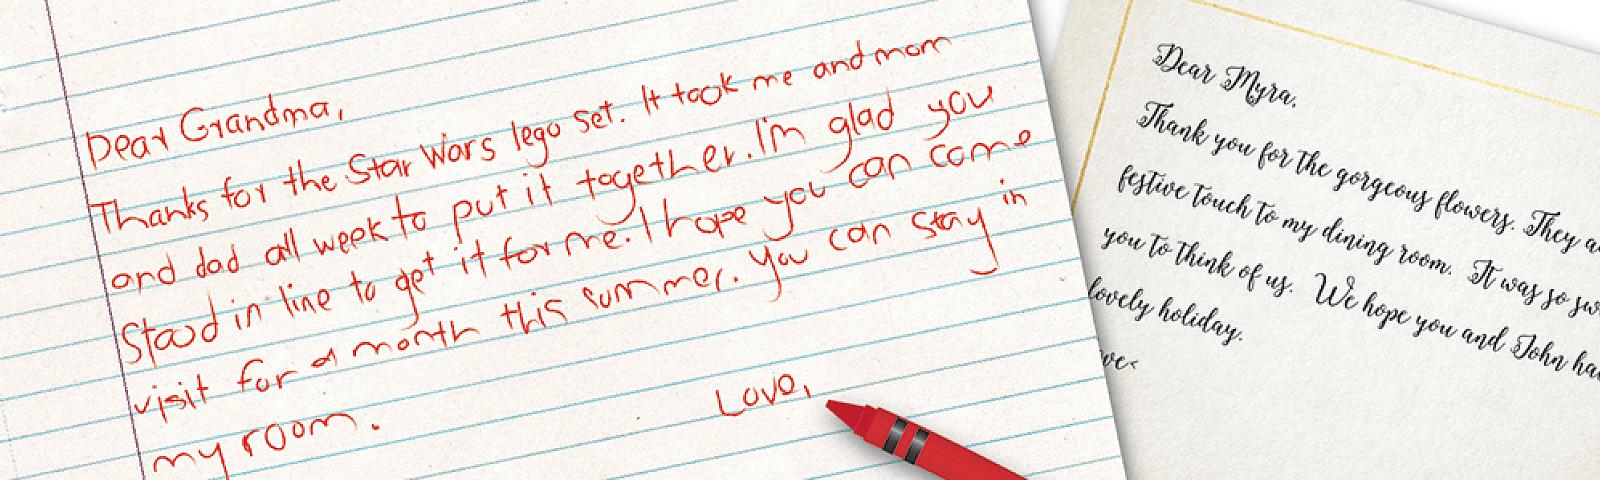 Dear Grandma,
Thanks for the Star Wars lego set. It took me and mom
and dad all week to put it together. I'm glad you
stood in line to get it for me. I hope you can come
visit for a month this summer. You can stay in
my room.
Love,
Dear Myra,
Thank you for the gorgeous flowers. They
festive touch to my dining room. It was so
you to think of us. We hope you and John
lovely holiday.